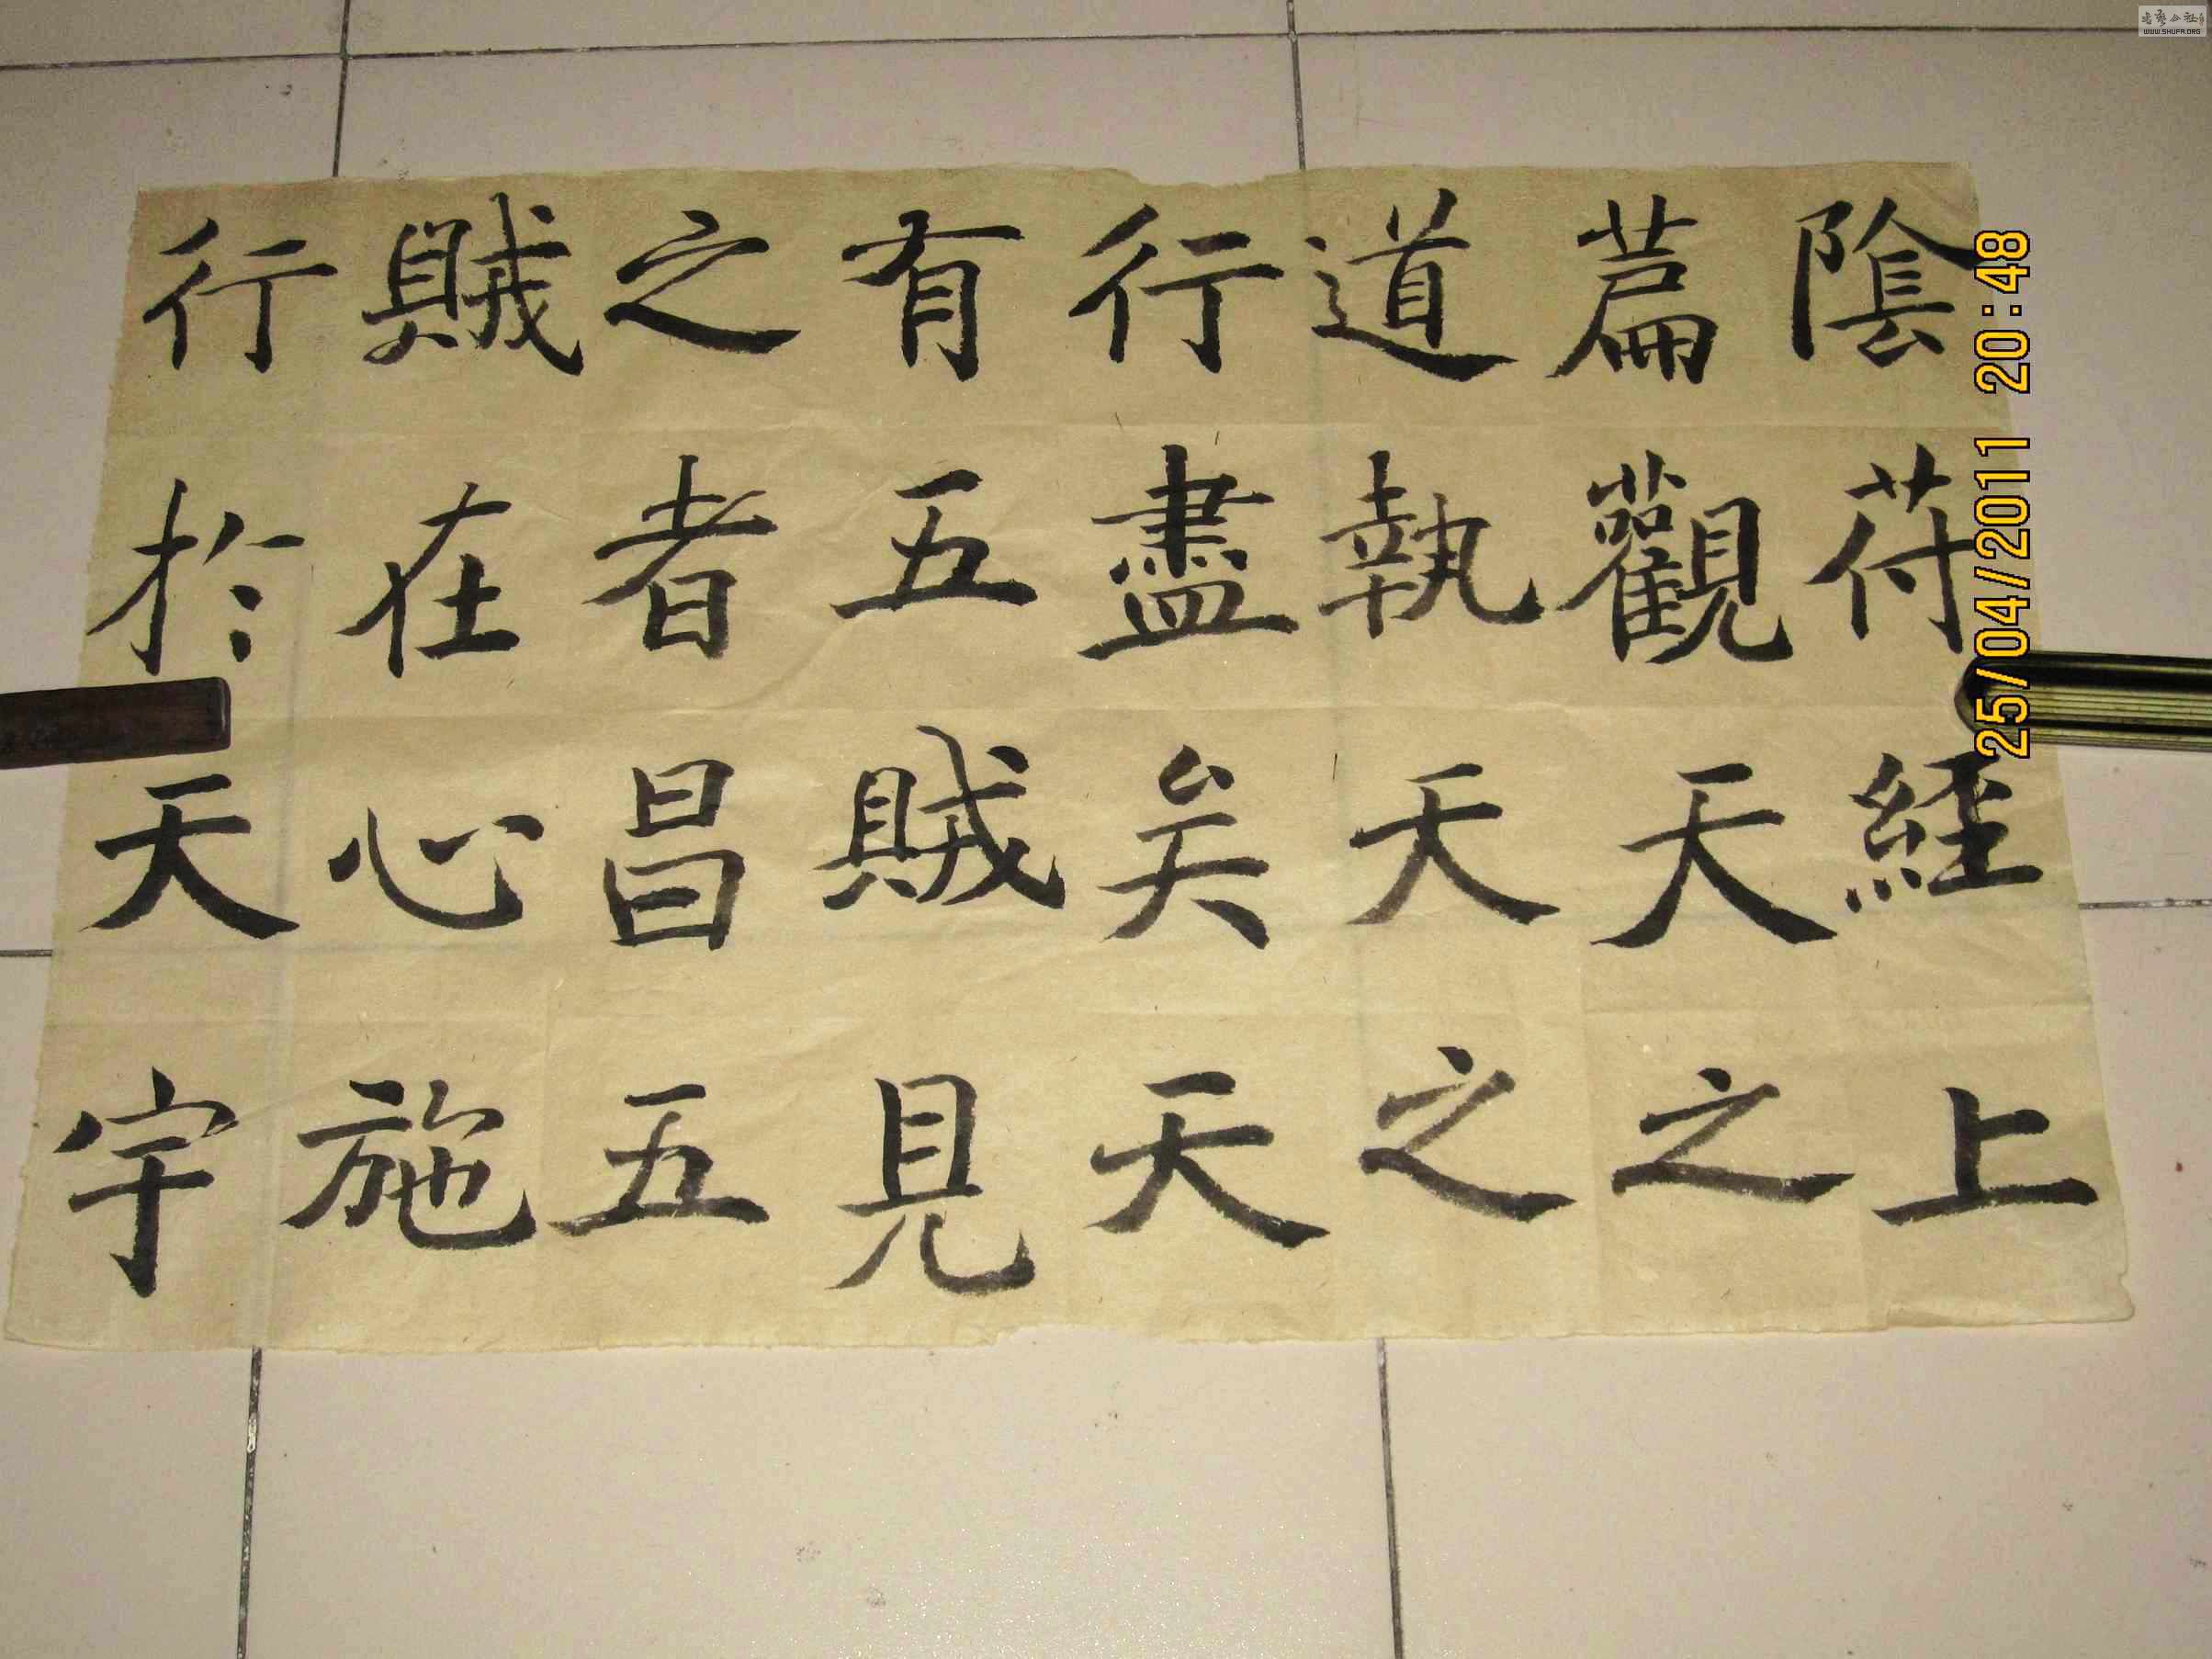 陰符經上
篇觀天之
道執天之
行盡矣天
有五賊見
之者昌五
賊在心施
行於天宇
25/04/2011 20:48
WWW.SHUFA.ORG